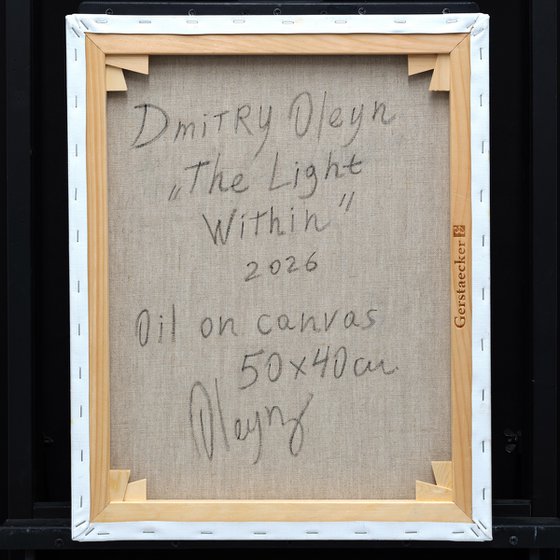 Dmitry Oleyn
„The Light
Within"
2026
Oil on canvas
50x40cm
Oleyn
Gerstaecker